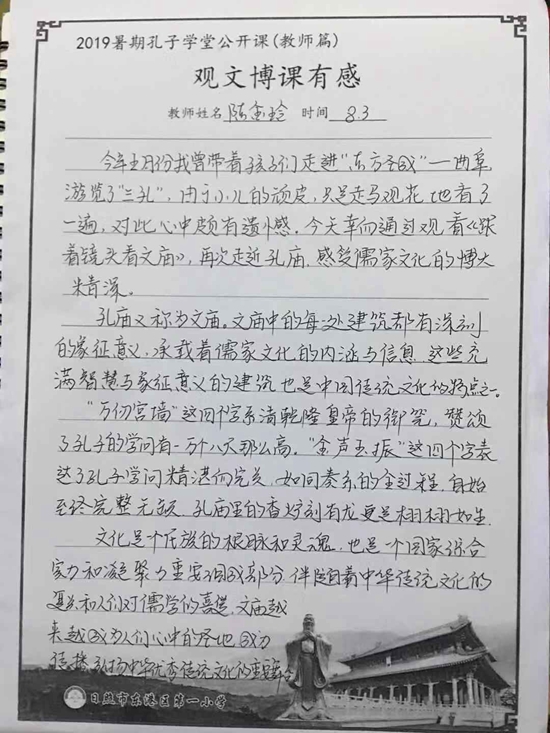 2019暑期孔子学堂公开课(教师篇)
观文博课有感
教师姓名 陈金玲 时间 8.3
今年五月份我曾带着孩子们走进"东方圣城"—曲阜,
游览了"三孔",由于小儿的顽皮,只是走马观花地看了
一遍,对此心中颇有遗憾。今天幸而通过观看《跟
着镜头看文庙》,再次走近孔庙,感受儒家文化的博大
精深。
孔庙又称为文庙。文庙中的每处建筑都有深刻
的象征意义,承载着儒家文化的内涵与信息,这些充
满智慧与象征意义的建筑也是中国传统文化的特点之一。
"万仞宫墙"这四个字系清乾隆皇帝的御笔,赞颂
了孔子的学问有一万个八尺那么高。"金声玉振"这四个字表
达了孔子学问精湛而完美,如同奏乐的全过程,自始
至终完整无缺,孔庙里的香炉刻有龙更是栩栩如生
文化是个民族的根脉和灵魂,也是一个国家综合
实力和凝聚力重要组成部分,伴随着中华传统文化的
复兴和人们对儒学的喜爱,文庙越
来越成为人们心中的圣地,成为
传播弘扬中华优秀传统文化的重要
日照市东港区第一小学